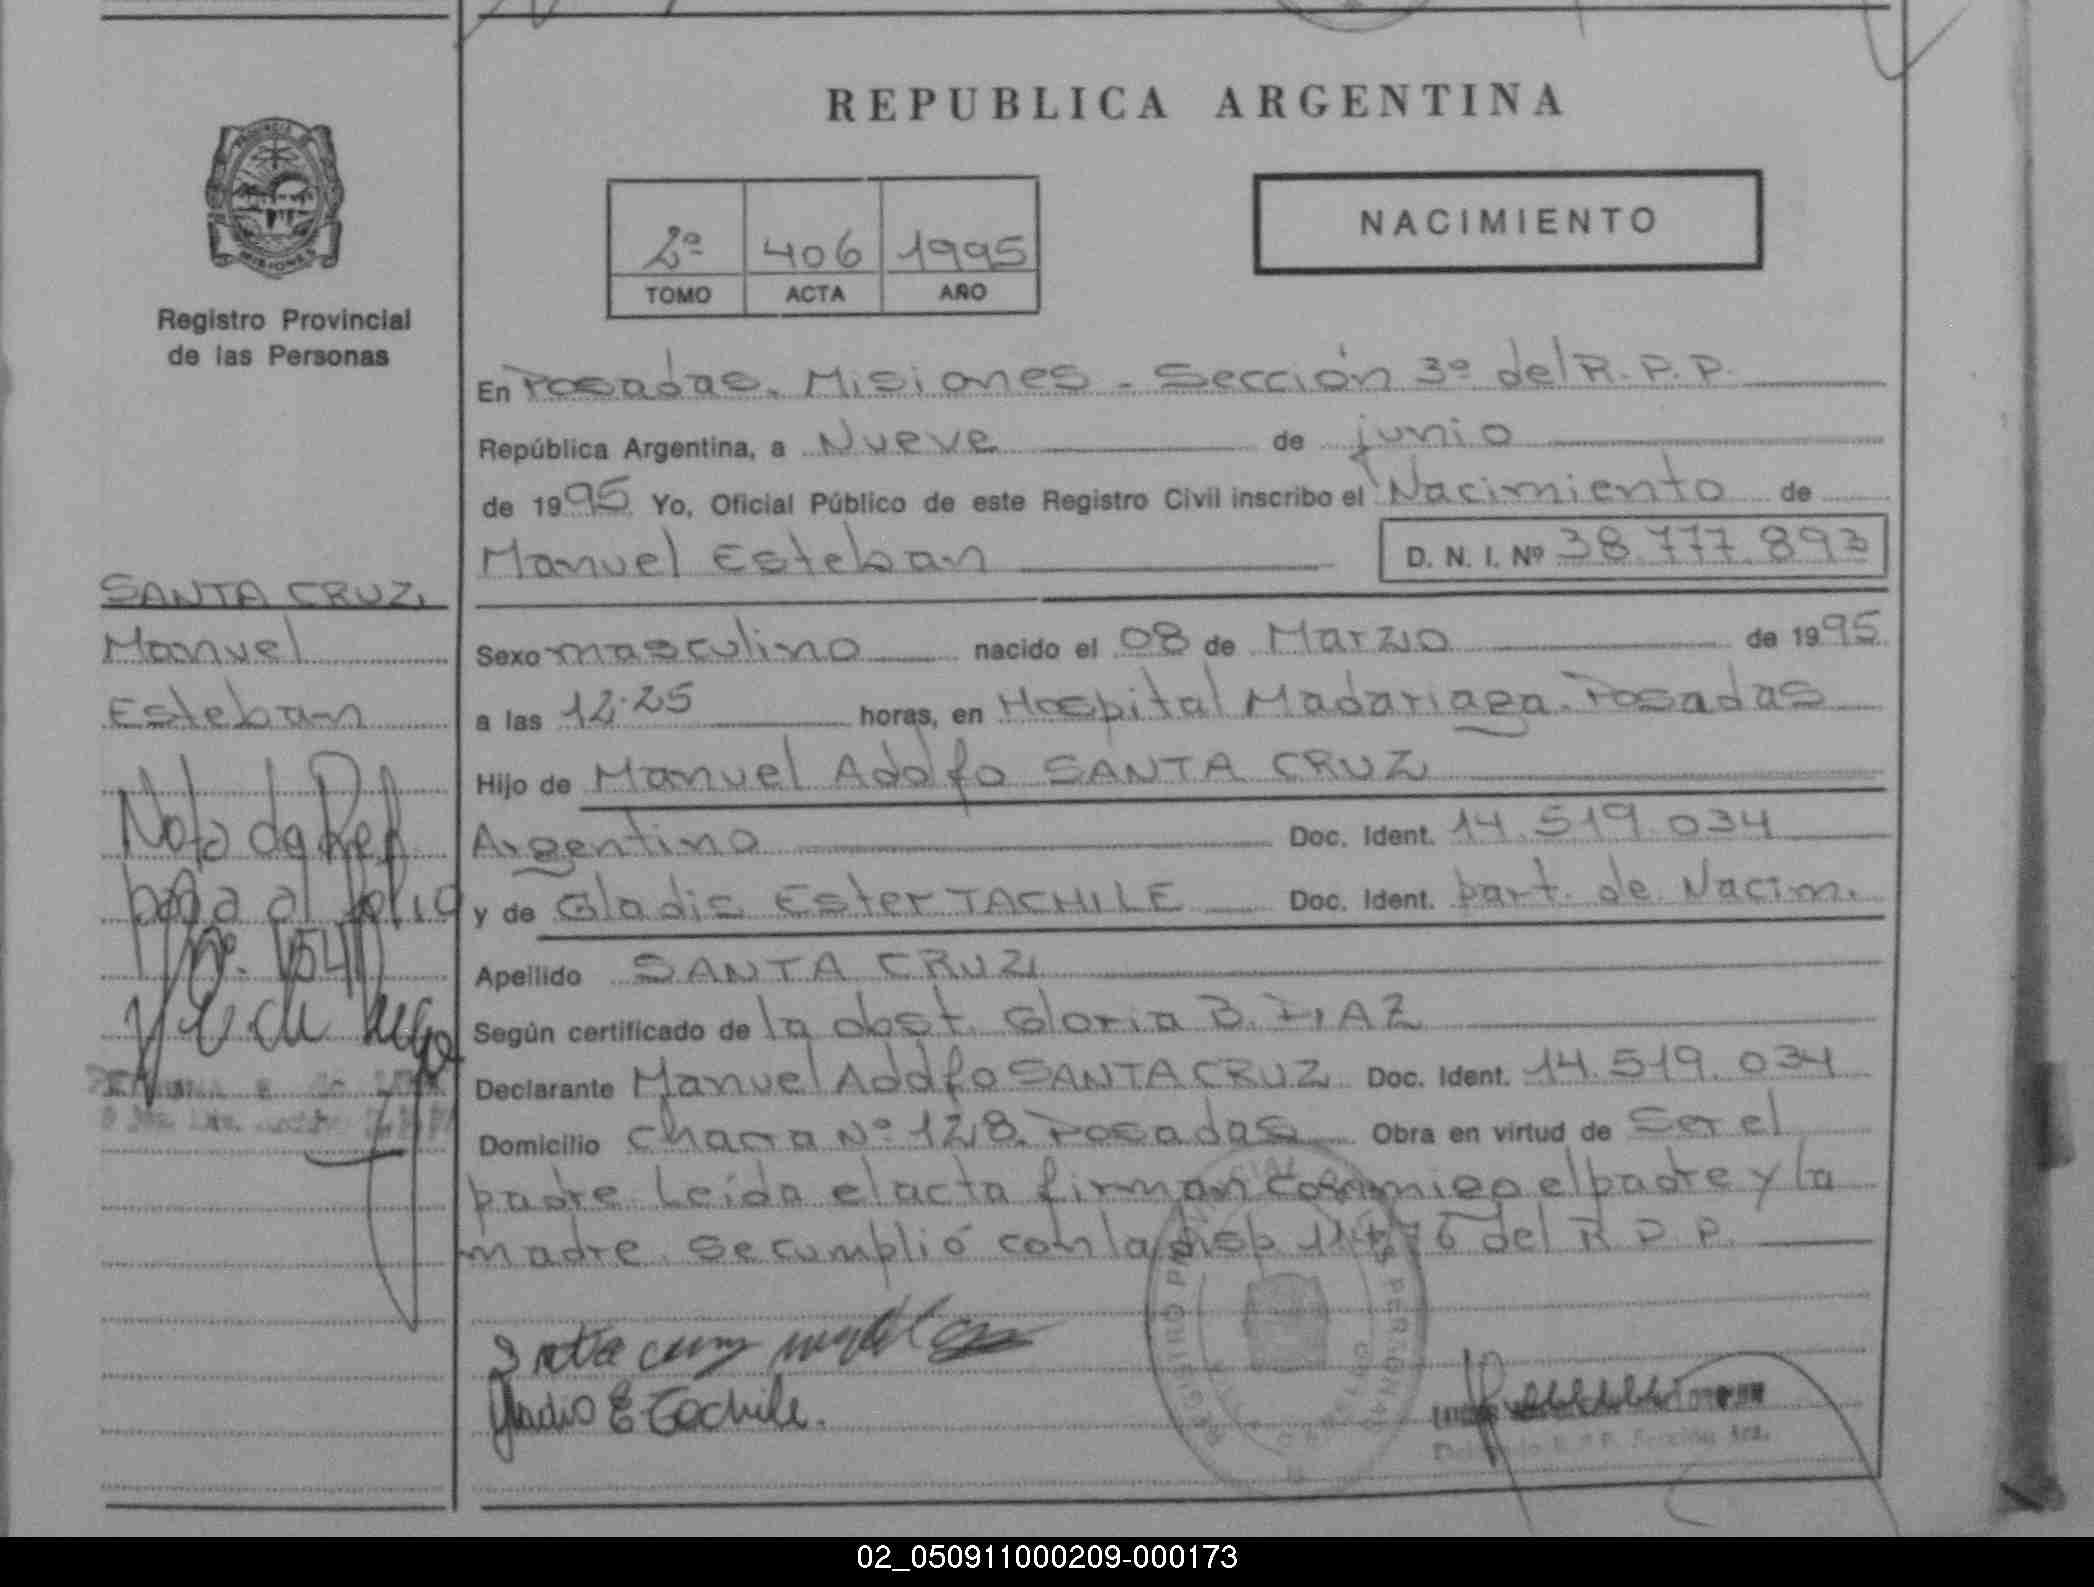 REPUBLICA ARGENTINA
NACIMIENTO
2º 406 1995
TOMO ACTA AÑO
PROVINCIA DE
MISIONES
Registro Provincial
de las Personas
En Posadas. Misiones - Sección 3º del R.P.P.
República Argentina, a Nueve de junio
de 1995 Yo, Oficial Público de este Registro Civil inscribo el Nacimiento de
Manuel Esteban D. N. I. Nº 38.777.893
SANTA CRUZ
Manuel
Esteban
Sexo masculino nacido el 08 de Marzo de 1995
a las 12.25 horas, en Hospital Madariaga. Posadas
Hijo de Manuel Adolfo SANTA CRUZ
Argentino Doc. Ident. 14.519.034
y de Gladis Ester TACHILE Doc. Ident. part. de Nacim.
Apellido SANTA CRUZ
Según certificado de la obst. Gloria B. DIAZ
Declarante Manuel Adolfo SANTA CRUZ Doc. Ident. 14.519.034
Domicilio Chacra Nº 128. Posadas Obra en virtud de Ser el
padre Leída el acta firman conmigo el padre y la
madre. Se cumplió con la disp 11/76 del R.P.P.
Nota de Ref
al folio
Nº. 154
Gladis E Tachile.
02_050911000209-000173